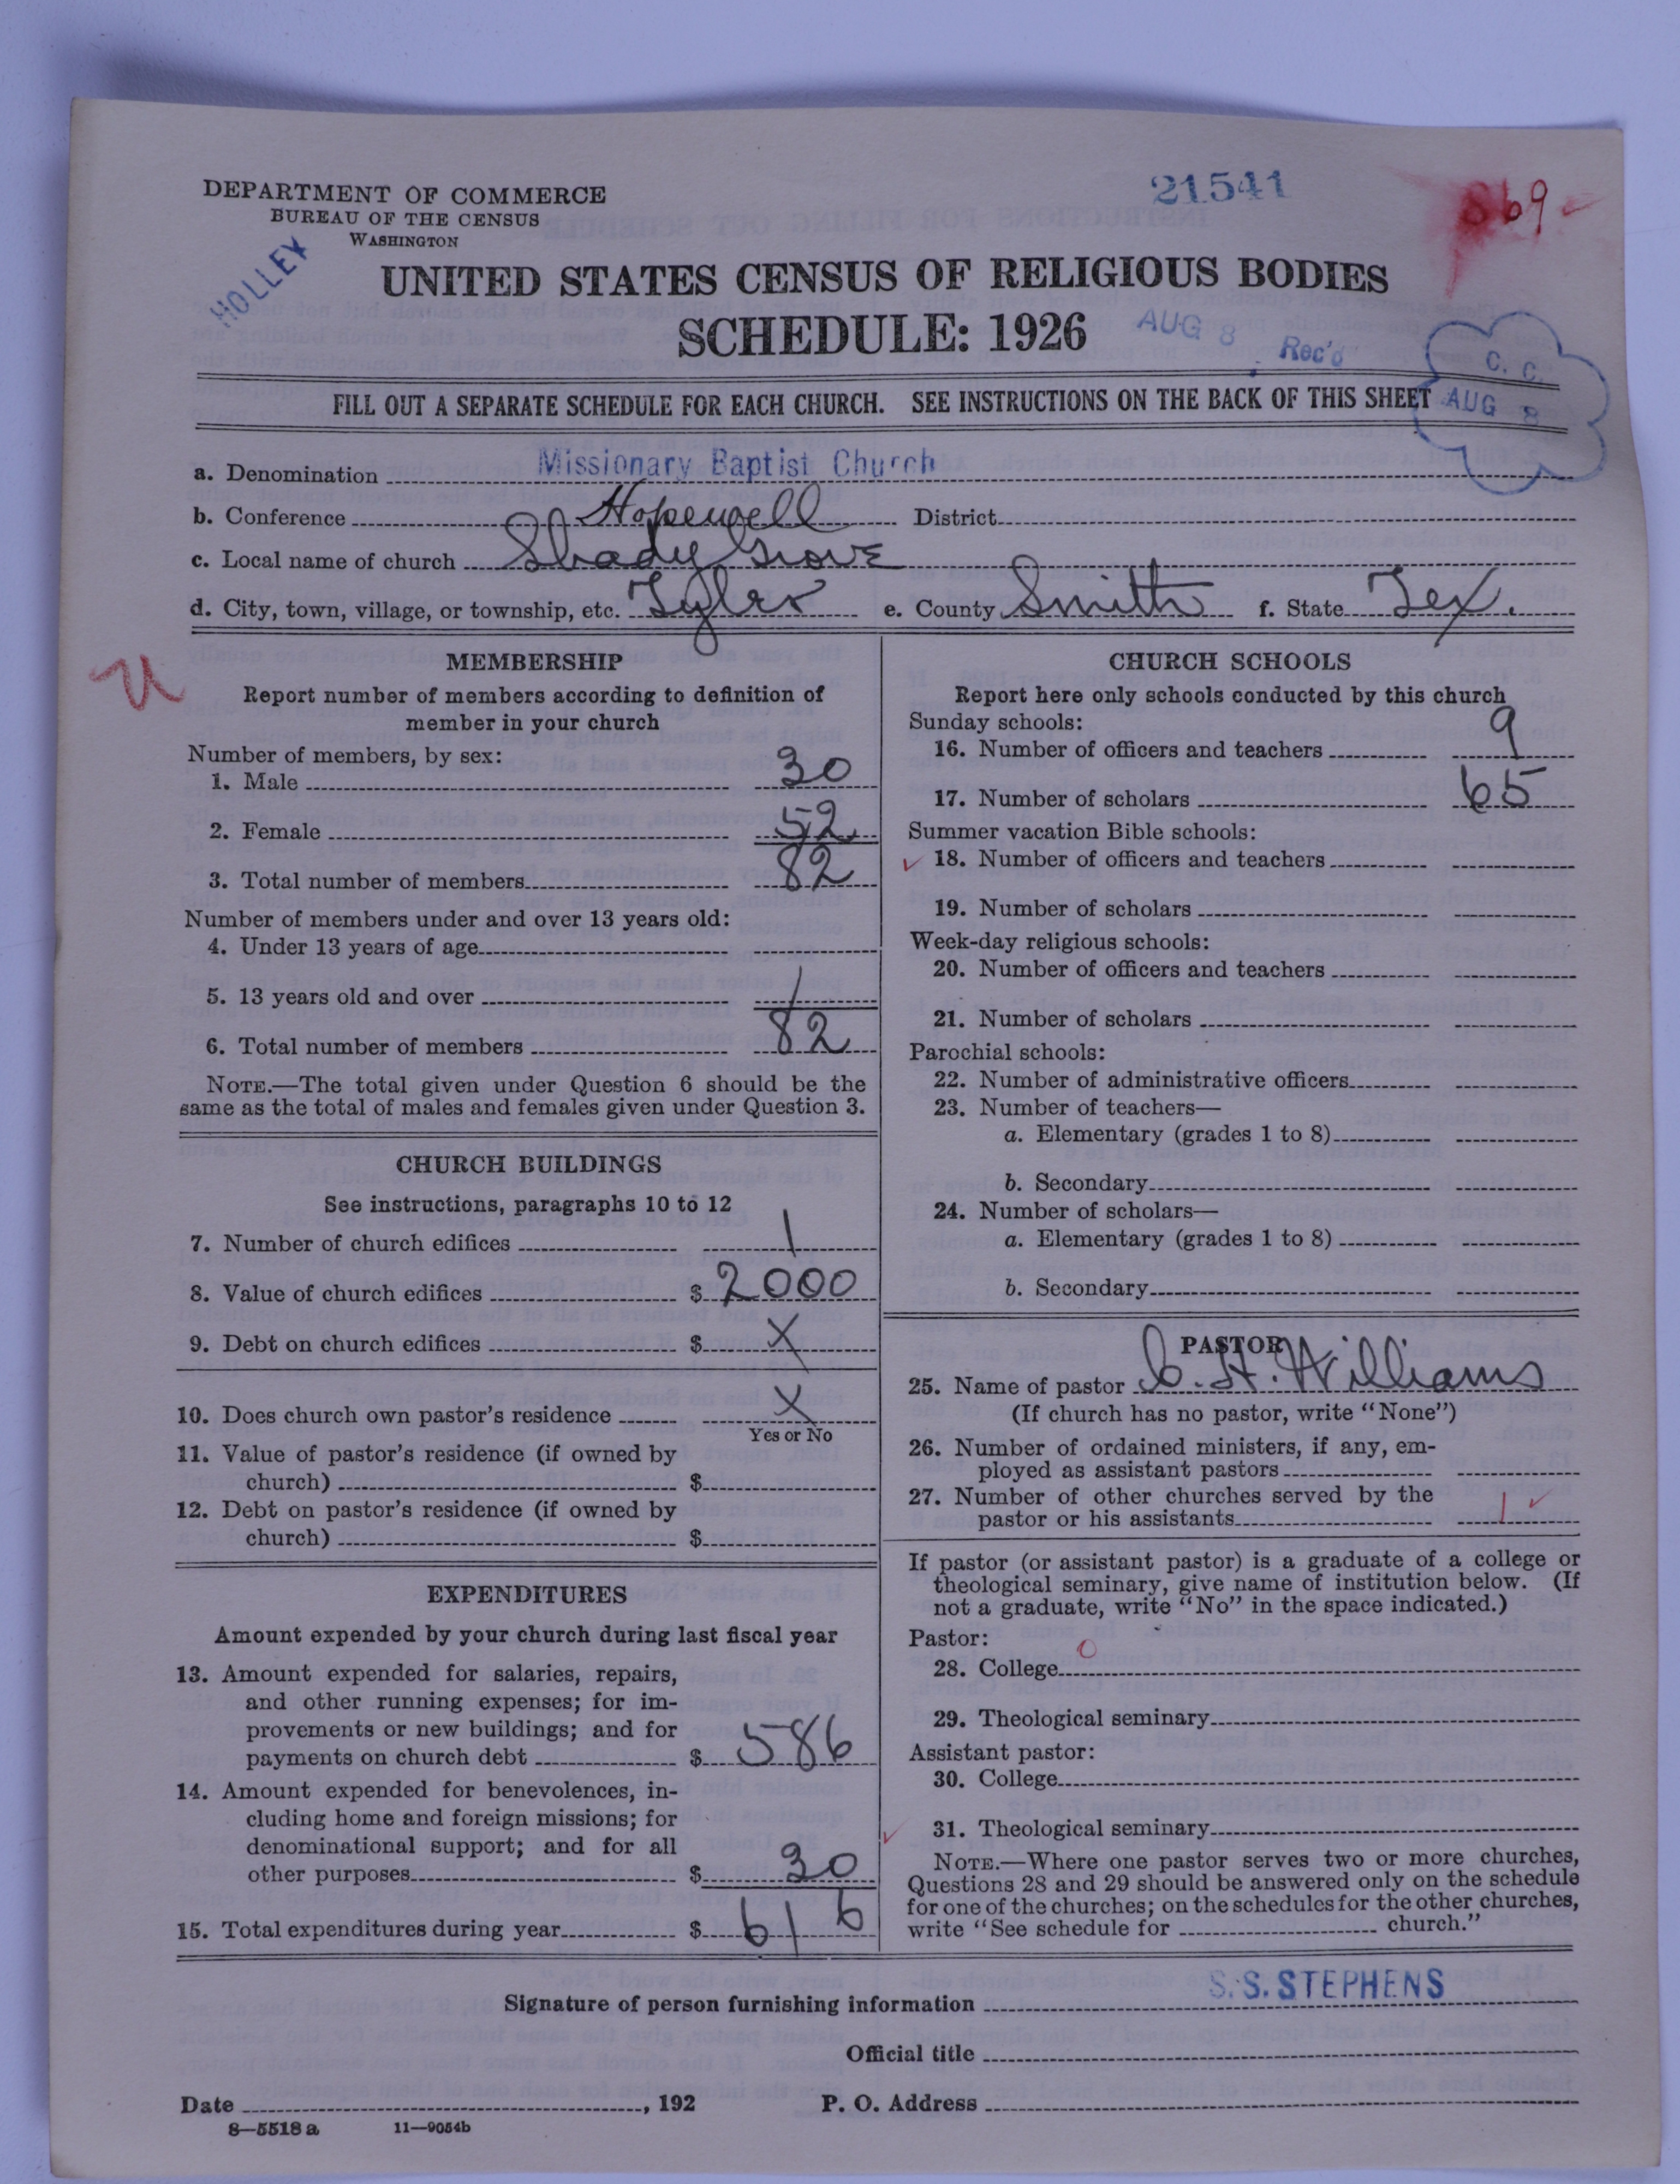 DEPARTMENT OF COMMERCE
BUREAU OF THE CENSUS
WASHINGTON
HOLLEY
21541
869
UNITED STATES CENSUS OF RELIGIOUS BODIES
SCHEDULE: 1926
AUG 8 Rec'd
C. C.
AUG 8
FILL OUT A SEPARATE SCHEDULE FOR EACH CHURCH. SEE INSTRUCTIONS ON THE BACK OF THIS SHEET
a. Denomination Missionary Baptist Church
b. Conference Hopewell District
c. Local name of church Shady Grove
d. City, town, village, or township, etc. Tyler e. County Smith f. State Tex.
U
MEMBERSHIP
Report number of members according to definition of
member in your church
Number of members, by sex:
1. Male 30
2. Female 52
3. Total number of members 82
Number of members under and over 13 years old:
4. Under 13 years of age
5. 13 years old and over /
6. Total number of members 82
NOTE.—The total given under Question 6 should be the
same as the total of males and females given under Question 3.
CHURCH BUILDINGS
See instructions, paragraphs 10 to 12
7. Number of church edifices 1
8. Value of church edifices $ 2000
9. Debt on church edifices $ X
10. Does church own pastor's residence X
Yes or No
11. Value of pastor's residence (if owned by
church) $
12. Debt on pastor's residence (if owned by
church) $
EXPENDITURES
Amount expended by your church during last fiscal year
13. Amount expended for salaries, repairs,
and other running expenses; for im-
provements or new buildings; and for
payments on church debt $ 586
14. Amount expended for benevolences, in-
cluding home and foreign missions; for
denominational support; and for all
other purposes $ 30
15. Total expenditures during year $ 616
CHURCH SCHOOLS
Report here only schools conducted by this church
Sunday schools:
16. Number of officers and teachers 9
17. Number of scholars 65
Summer vacation Bible schools:
18. Number of officers and teachers
19. Number of scholars
Week-day religious schools:
20. Number of officers and teachers
21. Number of scholars
Parochial schools:
22. Number of administrative officers
23. Number of teachers—
a. Elementary (grades 1 to 8)
b. Secondary
24. Number of scholars—
a. Elementary (grades 1 to 8)
b. Secondary
PASTOR
25. Name of pastor C. H. Williams
(If church has no pastor, write "None")
26. Number of ordained ministers, if any, em-
ployed as assistant pastors
27. Number of other churches served by the
pastor or his assistants 1
If pastor (or assistant pastor) is a graduate of a college or
theological seminary, give name of institution below. (If
not a graduate, write "No" in the space indicated.)
Pastor:
28. College 0
29. Theological seminary
Assistant pastor:
30. College
31. Theological seminary
NOTE.—Where one pastor serves two or more churches,
Questions 28 and 29 should be answered only on the schedule
for one of the churches; on the schedules for the other churches,
write "See schedule for church."
Signature of person furnishing information S. S. STEPHENS
Official title
Date , 192 P. O. Address
8—5518 a 11—9054b